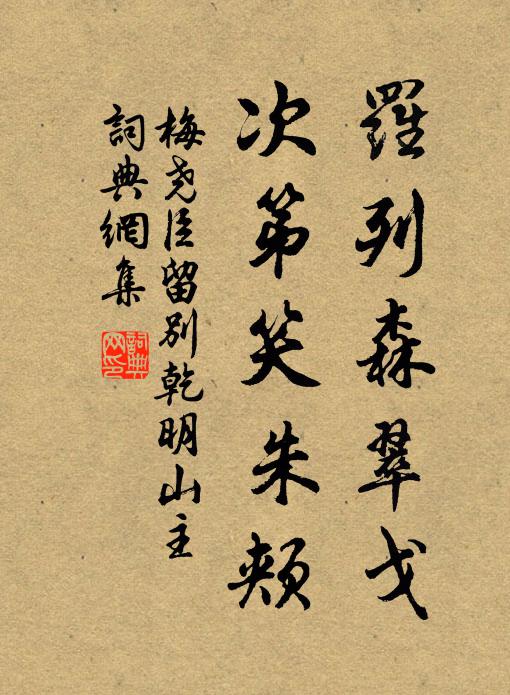 羅列森翠戈
次第笑朱頰
梅堯臣留別乾明山主
詞典網集
詞典
網印